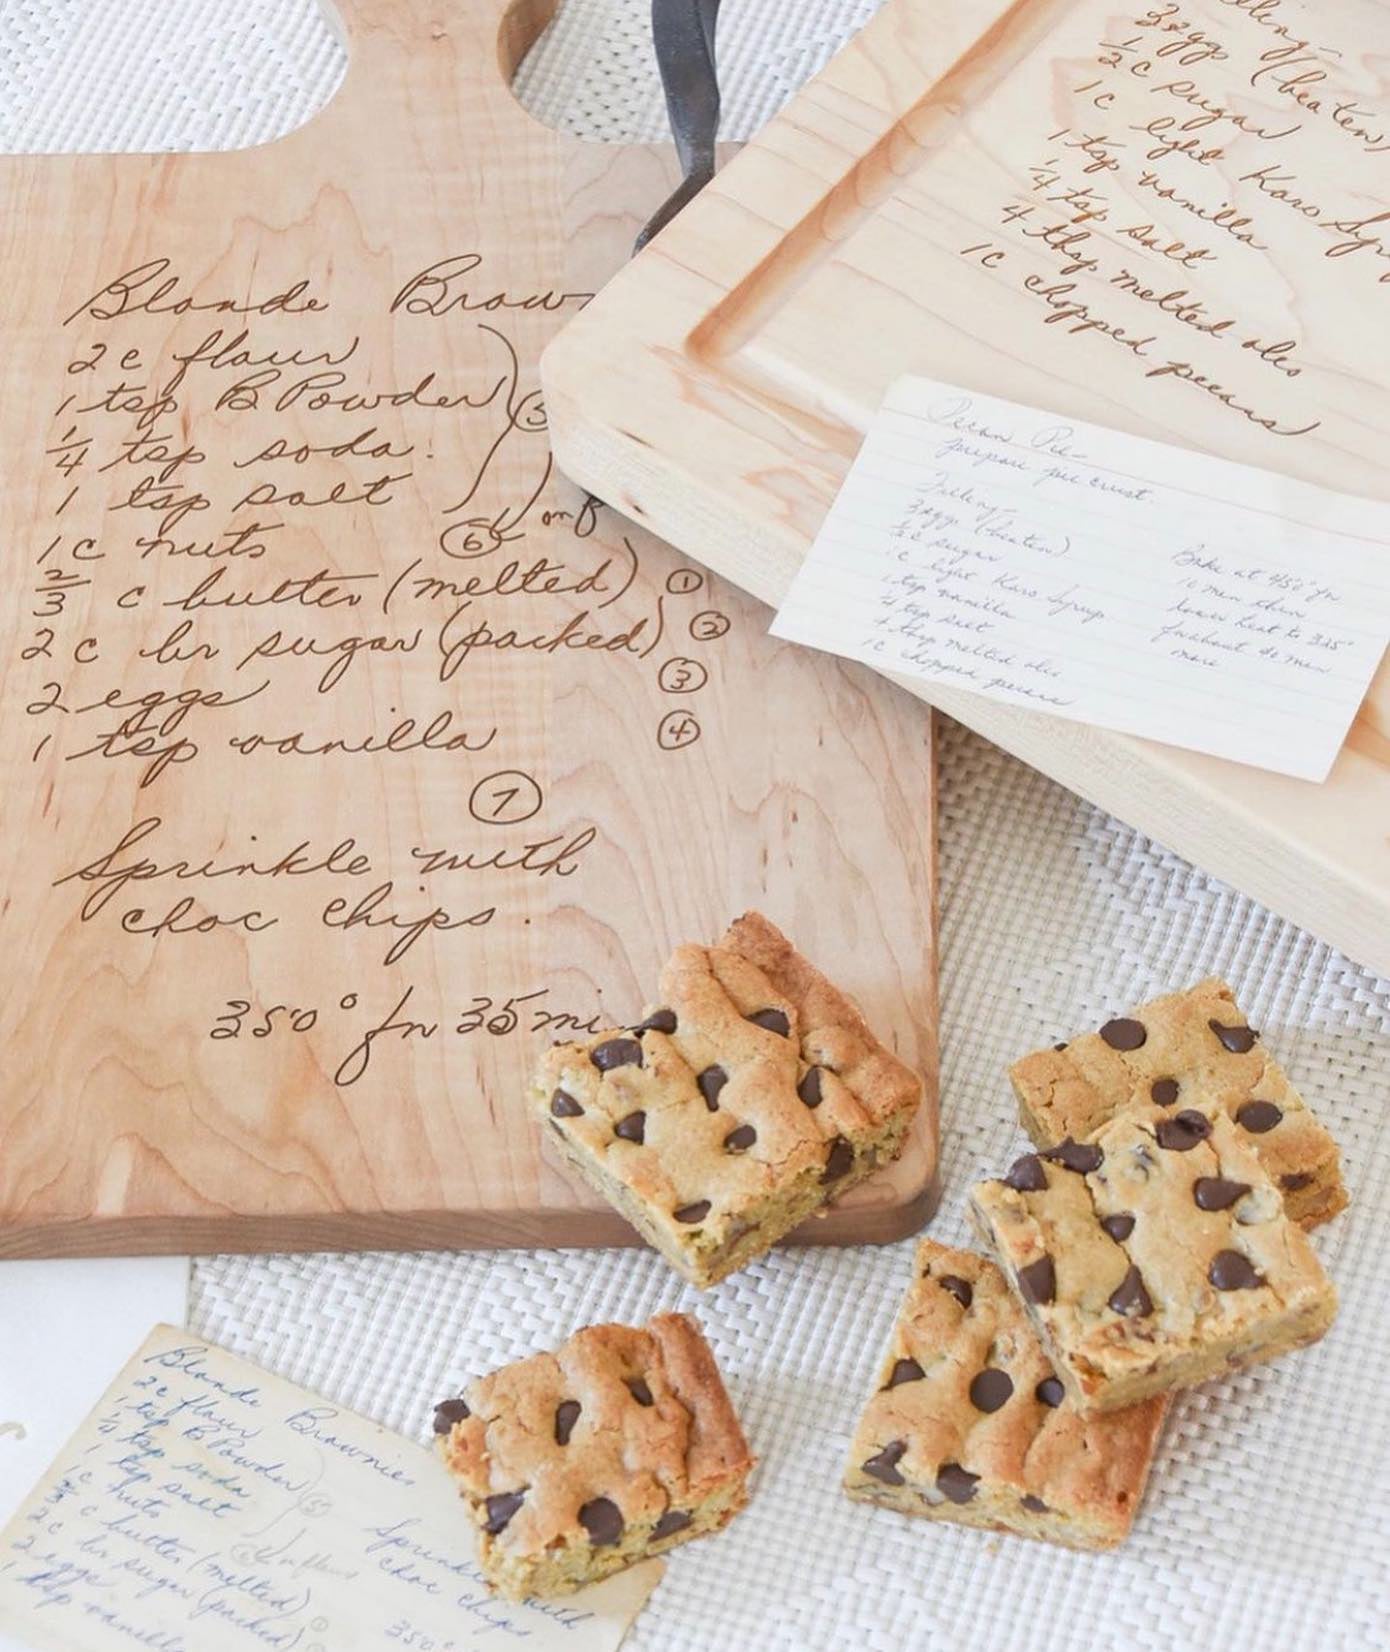 Blonde Brow
2 c flour
1 tsp B. Powder
1/4 tsp soda.
1 tsp salt
5
1 c nuts
6
2/3 c butter (melted) 1
2 c br sugar (packed) 2
2 eggs 3
1 tsp vanilla 4
7
Sprinkle with
choc chips.
350° for 35 mi
3 eggs (beaten)
1/2 c sugar
1 c light Karo Syr
1 tsp vanilla
1/4 tsp salt
4 tbsp melted oleo
1 c chopped pecans
Pecan Pie-
prepare pie crust.
Filling-
3 eggs (beaten)
1/2 c sugar
1 c light Karo Syrup
1 tsp vanilla
1/4 tsp salt
4 tbsp melted oleo
1 c chopped pecans
Bake at 450° for
10 min then
lower heat to 325°
for about 30 min
more
Blonde Brownies
2 c flour
1 tsp B. Powder
1/4 tsp soda
1 tsp salt
5
1 c nuts
2/3 c butter (melted)
2 c br sugar (packed)
2 eggs
1 tsp vanilla
Sprinkle
with
choc chips
350°